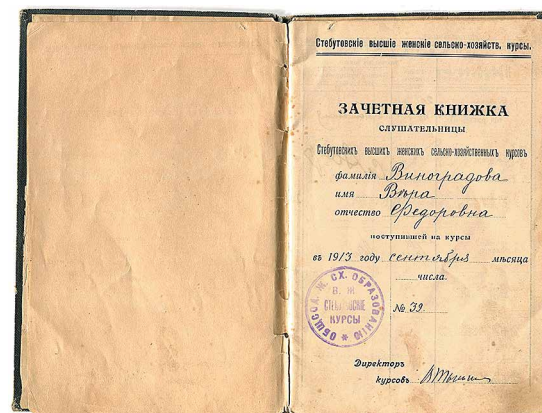 Стебутовскіе высшіе женскіе сельско-хозяйств. курсы.
ЗАЧЕТНАЯ КНИЖКА
СЛУШАТЕЛЬНИЦЫ
Стебутовскихъ высшихъ женскихъ сельско-хозяйственныхъ курсовъ
фамилія Виноградова
имя Вѣра
отчество Федоровна
поступившей на курсы
въ 1913 году сентября мѣсяца
числа.
ОБЩ. СОД. Ж. СХ. ОБРАЗОВАНІЮ
В. Ж.
СТЕБУТОВСКІЕ
КУРСЫ
№ 39.
Директоръ
курсовъ